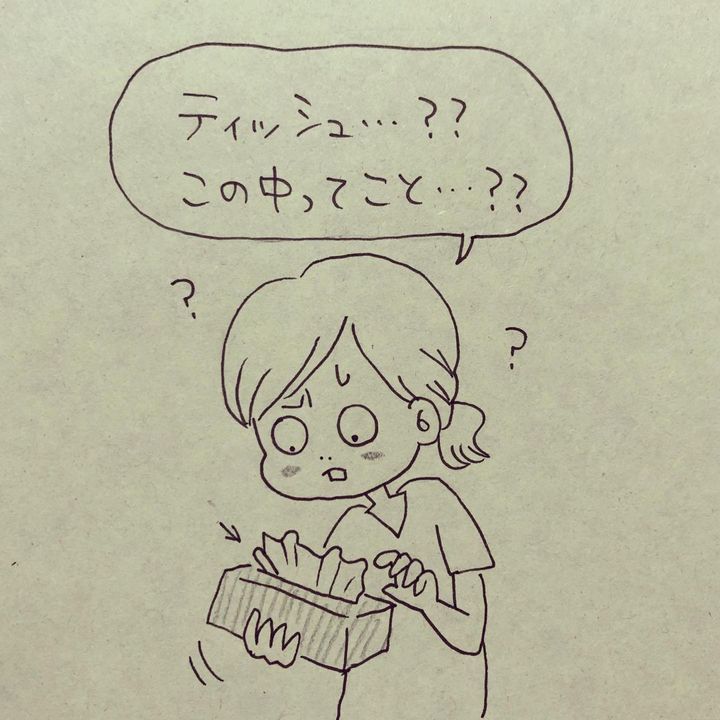 ティッシュ…??
この中ってこと…??
?
?